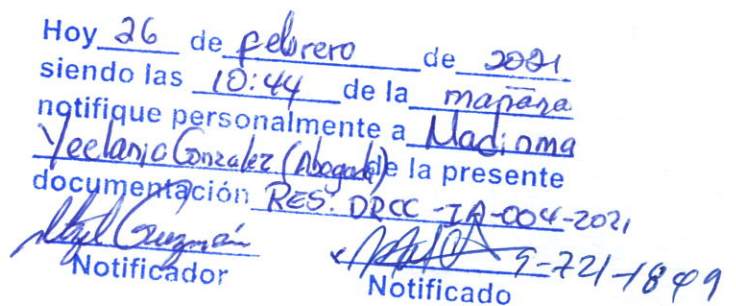 Hoy 26 de febrero de 2021
siendo las 10:44 de la mañana
notifique personalmente a Madioma
Yeelania Gonzalez (Abogada) de la presente
documentación RES. DRCC-IA-004-2021
Guzmán 9-721-1849
Notificador Notificado